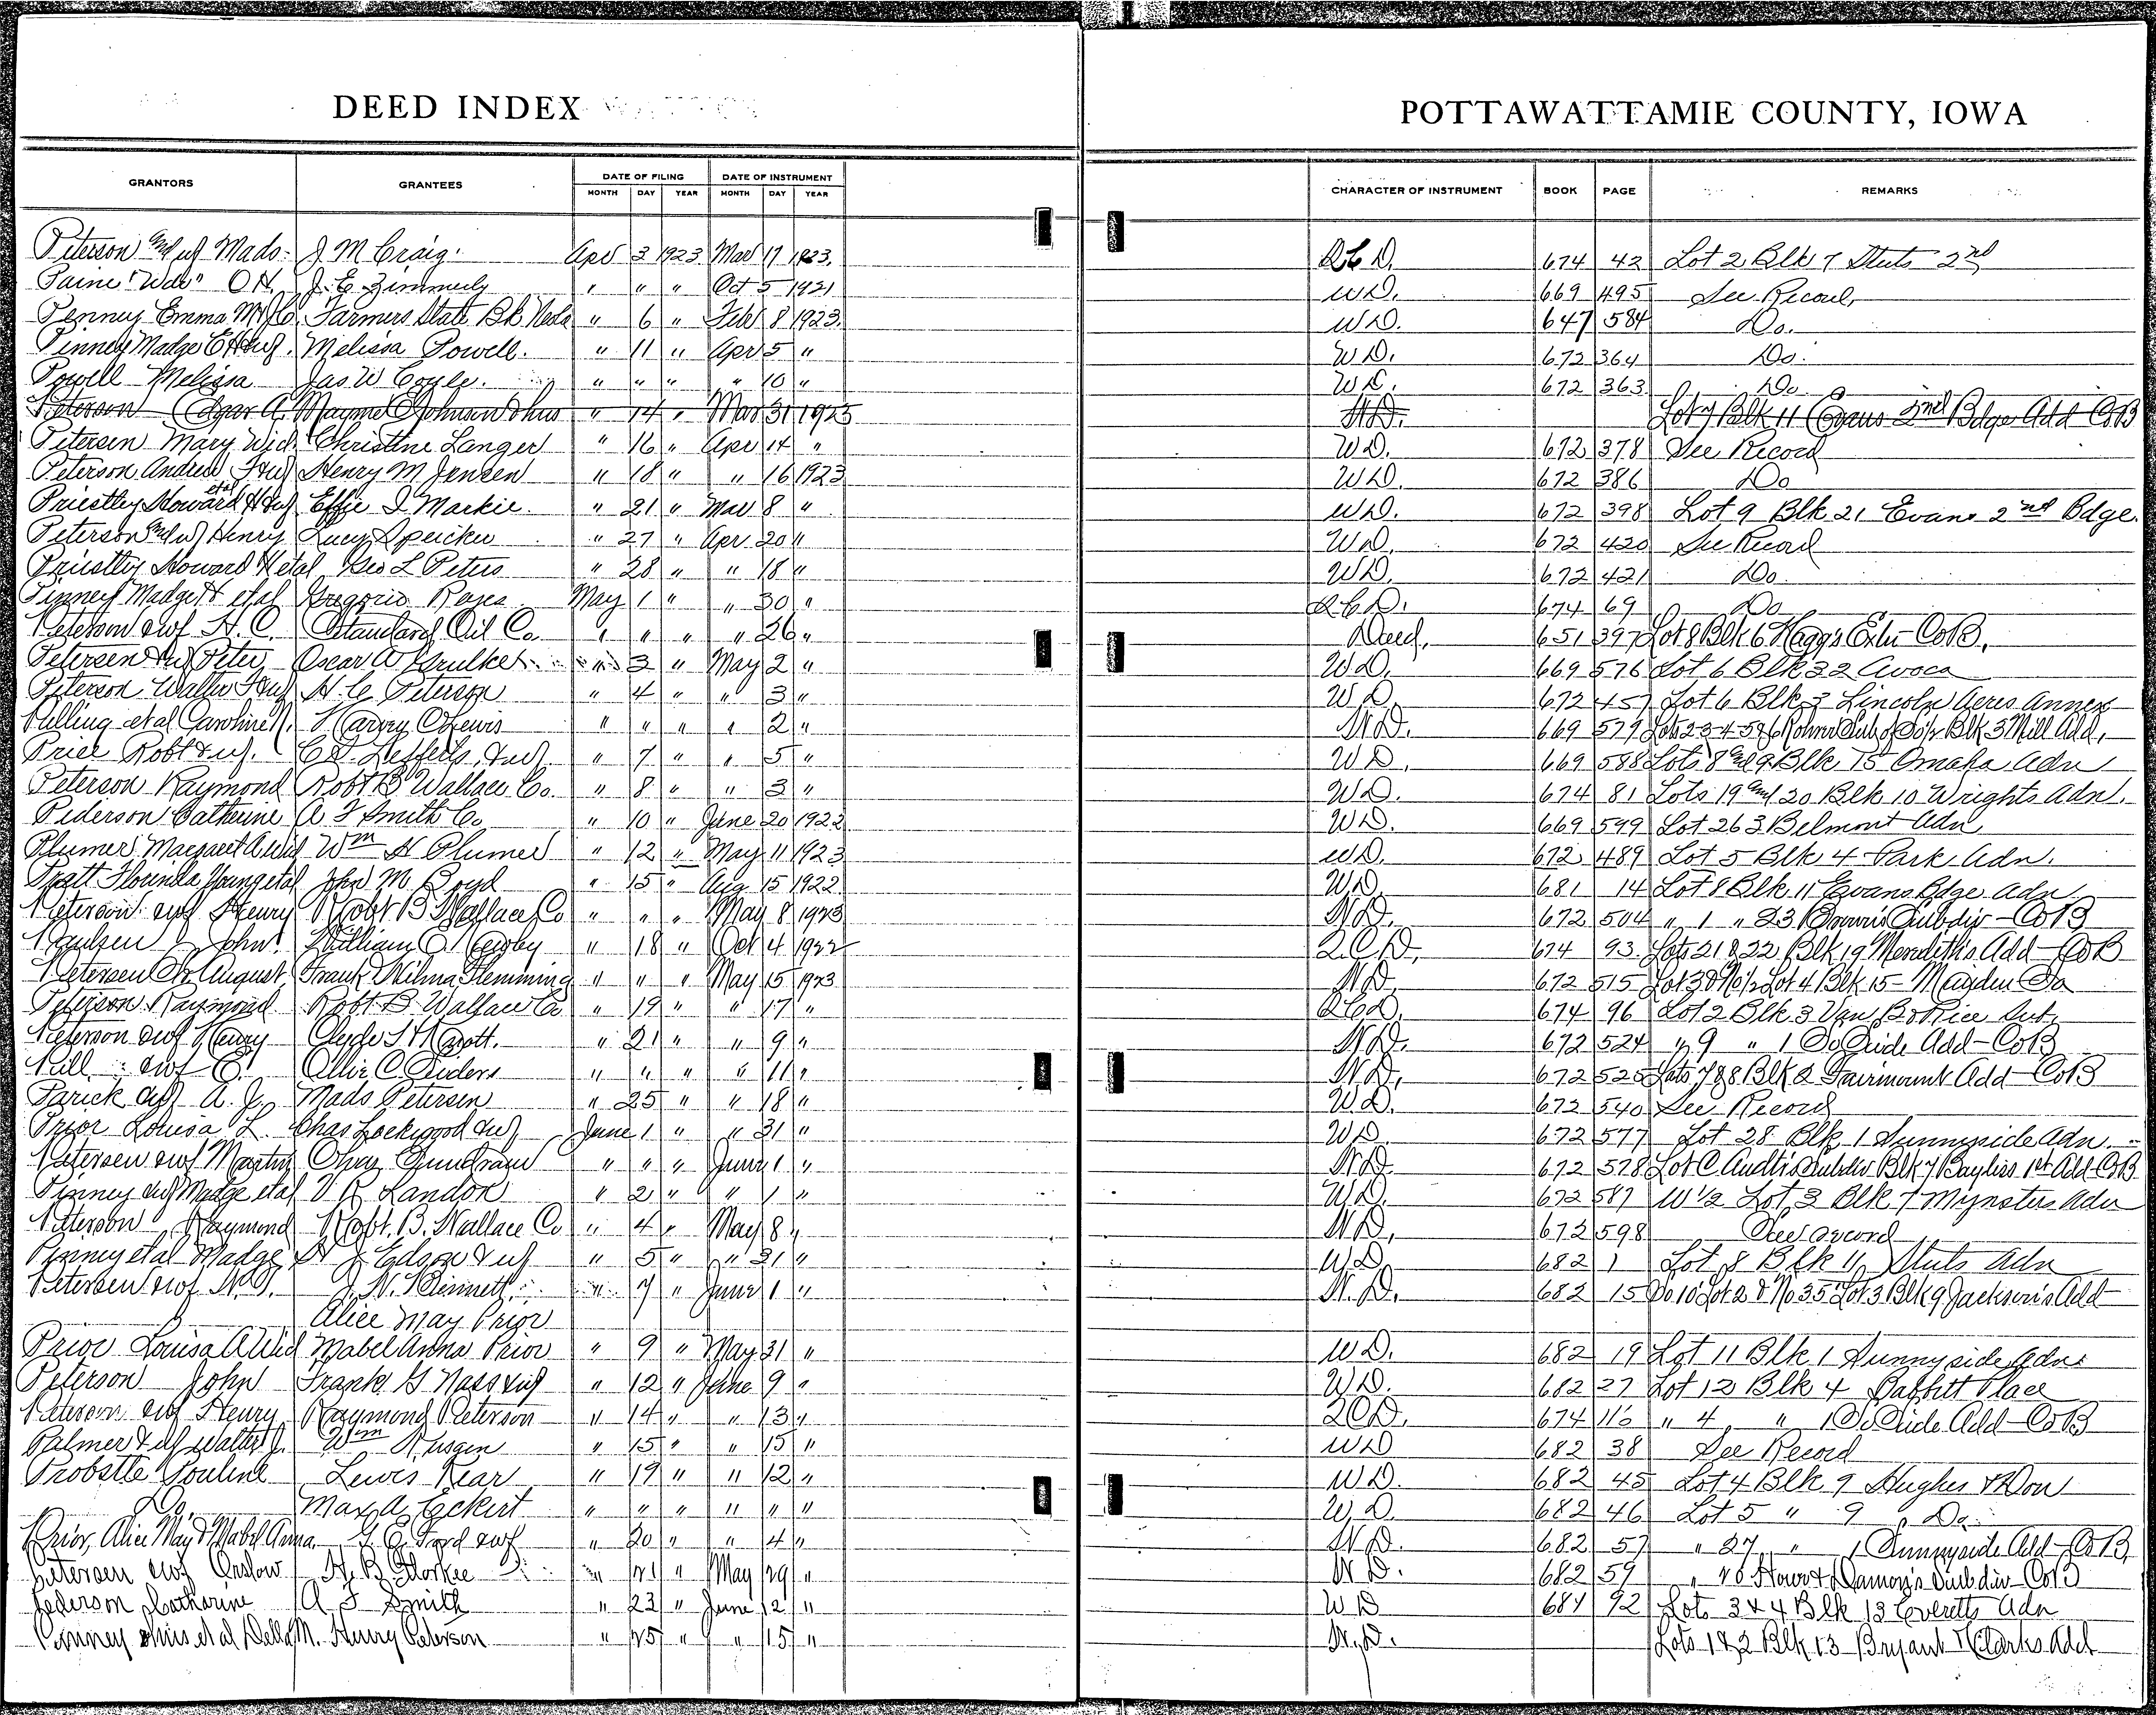 DEED INDEX
POTTAWATTAMIE COUNTY, IOWA
GRANTORS GRANTEES DATE OF FILING DATE OF INSTRUMENT CHARACTER OF INSTRUMENT BOOK PAGE REMARKS
MONTH DAY YEAR MONTH DAY YEAR
Peterson and wf Mads J M Craig. Apr 3 1923 Mar 17 1923. Q C D. 674 42 Lot 2 Blk 7 Stuts 2nd
Paine "Wdr" O H. J. E. Zimmerly " " " Oct 5 1921 W D. 669 495 See Record,
Penney Emma M Farmers State Bk " 6 " Feb 8 1923. W D. 647 584 Do.
Pinney Madge E H Melissa Powell. " 11 " Apr 5 " W D. 672 364 Do.
Powell Melissa Jas. W Coyle. " " " " 10 " W D. 672 363 Do
Peterson Edgar A. Mayme C Johnson " 14 " Mar 31 1923 W.D. Lot 7 Blk 11 Evans 2nd Bdge Add CoB
Petersen Mary Wid. Christine Langer " 16 " Apr 14 " W D. 672 378 See Record
Peterson Andrew &wf Henry M Jensen " 18 " " 16 1923 W D. 672 386 Do
Priestley Howard H &wf etal Effie I Markie. " 21 " Mar 8 " W D. 672 398 Lot 9 Blk 21 Evans 2nd Bdge.
Peterson and wf Henry Lucy Speicker " 27 " Apr 20 " W D. 672 420 See Record
Priestley Howard H etal Geo L Peters " 28 " " 18 " W D. 672 421 Do
Pinney Madge H etal Gregorio Rozes May 1 " " 30 " Q C D. 674 69 Do
Peterson &wf H. C. Standard Oil Co. " " " " 26 " Deed, 651 397 Lot 8 Blk 6 Haggs Extn CoB.
Petersen &wf Peter Oscar A " 3 " May 2 " W D. 669 576 Lot 6 Blk 32 Avoca
Peterson Walter &wf H. C. Peterson " 4 " " 3 " W D. 672 457 Lot 6 Blk 3 Lincoln Acres Annex
Pilling etal Caroline Harry C Lewis " " " " 2 " W.D. 669 579 Lots 2-3-4-5&6 Rohrer Sub of So ½ Blk 3 Mill Add,
Price Robt &wf. C D. Jefferis, &wf. " 7 " " 5 " W D. 669 588 Lots 8 and 9 Blk 15 Omaha Adn
Peterson Raymond Robt B Wallace Co. " 8 " " 3 " W D. 674 81 Lots 19 and 20 Blk 10 Wrights Adn.
Pederson Catherine A F Smith Co " 10 " June 20 1922 W D. 669 599 Lot 263 Belmont Adn
Plumer Margaret A Wid Wm H Plumer " 12 " May 11 1923 W D. 672 489 Lot 5 Blk 4 Park Adn.
Pratt Florinda Young etal John M Boyd " 15 " Aug 15 1922. W D. 681 14 Lot 8 Blk 11 Evans Bdge Adn
Peterson &wf Henry Robt B Wallace Co " " " May 8 1923 W.D. 672 504 " 1 " 23 Browns Subdiv-CoB
Paulsen John William C " 18 " Oct 4 1922 Q.C.D. 674 93. Lots 21 & 22, Blk 19 Merediths Add-CoB
Petersen August, Frank & Wilma Flemming " " " May 15 1923 W.D. 672 515 Lot 3 & N½ Lot 4 Blk 15- Ia
Peterson Raymond Robt. B. Wallace Co " 19 " " 17 " Q C D. 674 96 Lot 2 Blk 3 Van B & Rice Sub.
Peterson &wf Henry Clyde H Knott. " 21 " " 9 " W.D. 672 524 " 9 " 1 So Side Add-CoB
Pill &wf C. Ollie C Siders " " " " 11 " W.D. 672 525 Lots 7&8 Blk 2 Fairmount Add-CoB
Parick &wf A. J. Mads Petersen " 25 " " 18 " W.D. 672 540 See Record
Prior Louisa L. Chas Lockwood &wf June 1 " " 31 " W D. 672 577 Lot 28 Blk 1 Sunnyside Adn.
Petersen &wf Martin Chas " " " June 1 " W.D. 672 578 Lot C Audtrs Subdiv Blk 7 Bayliss 1st Add CoB
Pinney &wf Madge etal V R Landon " 2 " " 1 " W.D. 672 587 W½ Lot 3 Blk 7 Mynsters Adn
Peterson Raymond Robt. B. Wallace Co " 4 " May 8 " W.D. 672 598 See record
Pinney etal Madge H J Edson &wf " 5 " " 31 " W.D. 682 1 Lot 8 Blk 11 Stuts Adn
Petersen &wf N.P. J. N. Bennett. " 7 " June 1 " W.D. 682 15 So 10' Lot 2 & No 35' Lot 3 Blk 9 Jackson's Add
Alice May Prior
Prior Louisa A Wid Mabel Anna Prior " 9 " May 31 " W D. 682 19 Lot 11 Blk 1 Sunnyside Adn.
Peterson John Frank G Nass &wf " 12 " June 9 " W D. 682 27 Lot 12 Blk 4 Babbitt Place
Peterson &wf Henry Raymond Peterson " 14 " " 13 " Q C D. 674 116 " 4 " 1 So Side Add-CoB
Palmer &wf Walter J. Wm Kusgen " 15 " " 15 " W D 682 38 See Record
Probstle Pouline Lewis Kear " 19 " " 12 " W D. 682 45 Lot 4 Blk 9 Hughes & Don
Do Max A Eckert " " " " " " W D. 682 46 Lot 5 " 9 " Do.
Prior, Alice May & Mabel Anna. G. C. Ford &wf " 20 " " 4 " W.D. 682 57 " 27 " 1 Sunnyside Add-CoB.
Petersen &wf Onslow H. B. " 21 " May 29 " W D. 682 59 Howe & Damon's Subdiv-CoB
Pederson Catharine A F Smith " 23 " June 12 " W D 681 92 Lots 3 & 4 Blk 13 Everetts Adn
Pinney etal Della M. Henry Peterson " 25 " " 15 " W.D. Lots 1 & 2 Blk 13 Bryant & Clarks Add